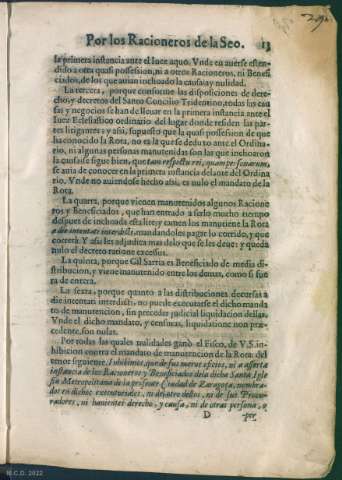 Por los Racioneros de la Seo. 13
la primera instancia ante el Iuez aquo. Vnde en auerse esten-
dido a otra quasi possession, ni a otros Racioneros, ni Benefi
ciados, de los que auian inchoado la causa ay nulidad.
La tercera, porque conforme las disposiciones de dere-
cho, y decretos del Santo Concilio Tridentino, todas las cau
sas y negocios se han de lleuar en la primera instancia ante el
Iuez Eclesiastico ordinario del lugar donde residen las par
tes litigantes: y assi, supuesto que la quasi possession de que
ha conocido la Rota, no es la que se deduto ante el Ordina
rio, ni algunas personas manutenidas son las que inchoaron
la causa: se sigue bien, que tam respectu rei, quam personarum,
se auia de conocer en la primera instancia delante del Ordina
rio. Vnde no auiendose hecho assi, es nulo el mandato de la
Rota.
La quarta, porque vienen manutenidos algunos Racione
ros y Beneficiados, que han entrado a serlo mucho tiempo
despues de inchoada esta lite; y tamen los mantiene la Rota
a die intentati interdicti, mandandoles pagar lo corrido, y que
correrà. Y assi les adjudica mas de lo que se les deue: y queda
nulo el decreto ratione excessus.
La quinta, porque Gil Sarria es Beneficiado de media di-
stribucion, y viene manutenido entre los demas, como si fue
ra de entera.
La sexta, porque quanto a las distribuciones decursas a
die intentati interdicti, no puede executarse el dicho manda
to de manutencion, sin preceder judicial liquidacion dellas.
Vnde el dicho mandato, y censuras, liquidatione non præ-
cedente, son nulas.
Por todas las quales nulidades ganò el Fisco, de V. S. in-
hibicion contra el mandato de manutencion de la Rota del
tenor siguiente. Inhibimos, que de sus meros oficios, ni a asserta
instancia de los Racioneros y Beneficiados de la dicha Santa Igle
sia Metropolitana de la presente Ciudad de Zaragoça, nombra-
dos en dichos executoriales, ni de otro dellos, ni de sus Procu-
radores, ni hauientes derecho, y causa, ni de otras persona, o
D per-
M.C.D. 2022